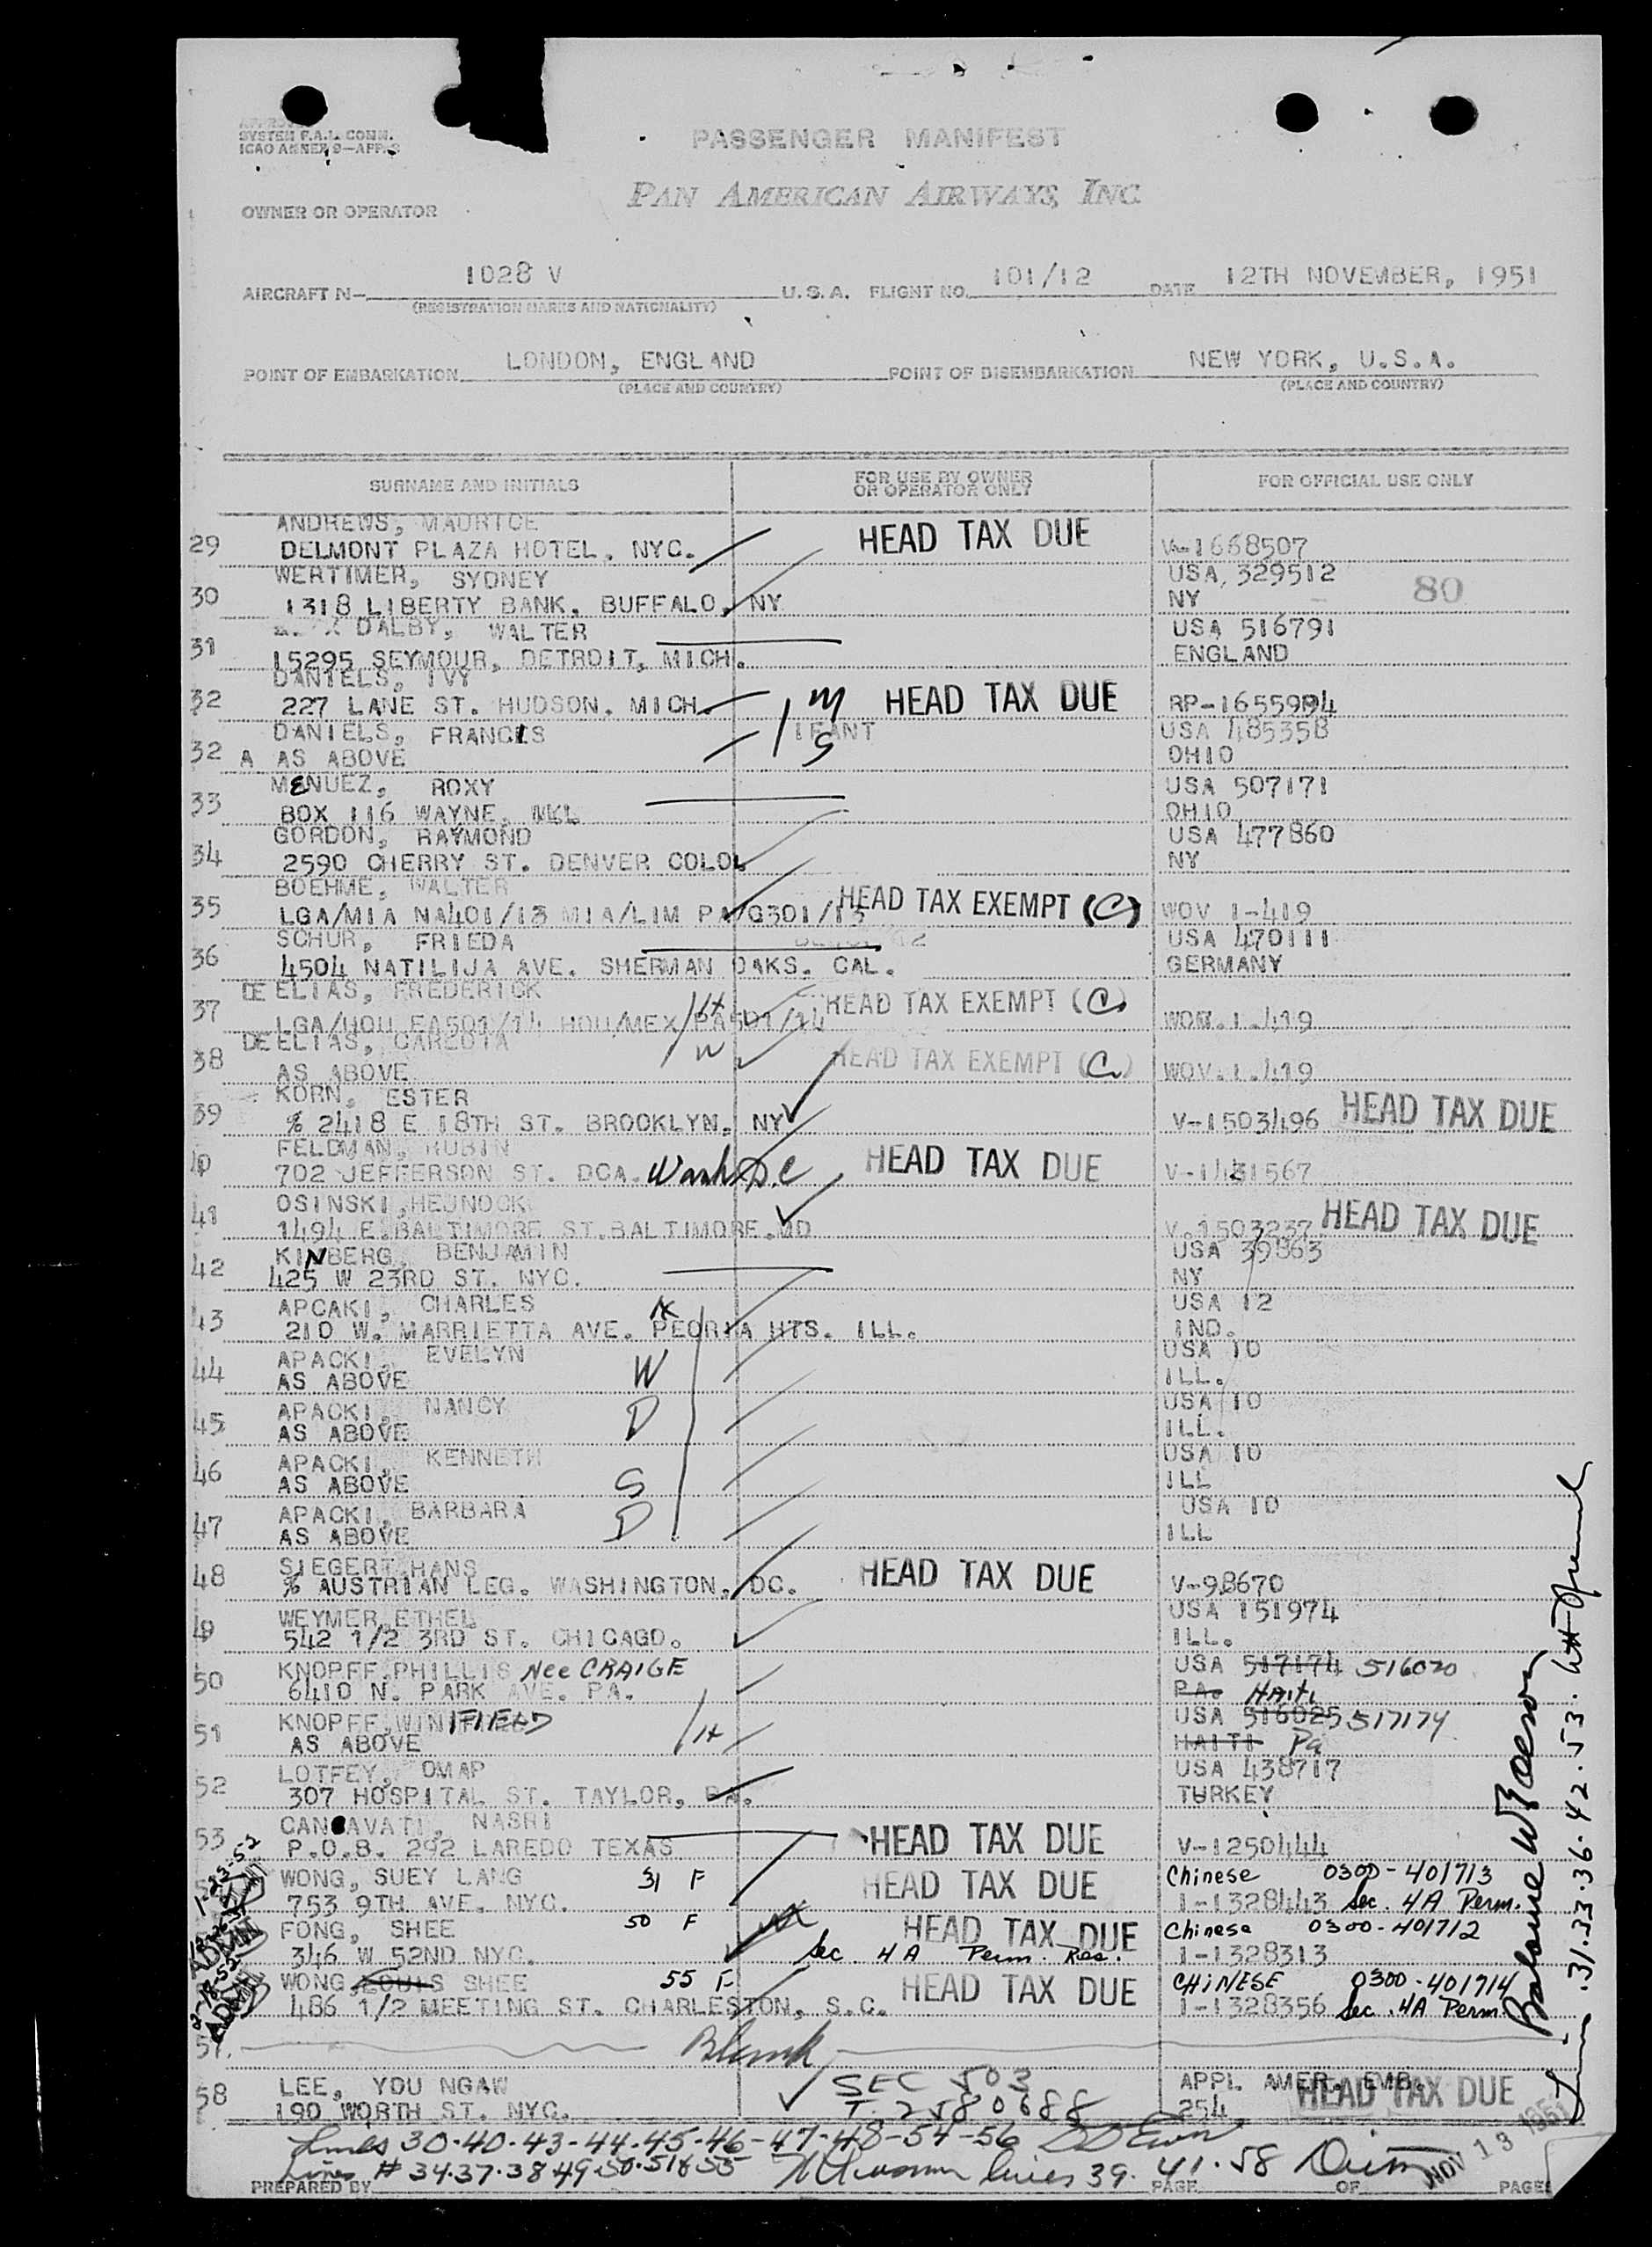 SYSTEM F.A.L. COMM.
ICAO ANNEX 9—APP. 3
PASSENGER MANIFEST
PAN AMERICAN AIRWAYS, INC.
OWNER OR OPERATOR
AIRCRAFT N— 1028 V U.S.A. FLIGHT NO. 101/12 DATE 12TH NOVEMBER, 1951
(REGISTRATION MARKS AND NATIONALITY)
POINT OF EMBARKATION LONDON, ENGLAND POINT OF DISEMBARKATION NEW YORK, U.S.A.
(PLACE AND COUNTRY) (PLACE AND COUNTRY)
SURNAME AND INITIALS FOR USE BY OWNER OR OPERATOR ONLY FOR OFFICIAL USE ONLY
ANDREWS, MAURICE
29 DELMONT PLAZA HOTEL. NYC. HEAD TAX DUE V-1668507
WERTIMER, SYDNEY USA, 329512
30 1318 LIBERTY BANK. BUFFALO, NY NY 80
DALBY, WALTER USA 516791
31 15295 SEYMOUR, DETROIT, MICH. ENGLAND
DANIELS, IVY
32 227 LANE ST. HUDSON. MICH. M HEAD TAX DUE RP-1655994
DANIELS, FRANCIS IFANT USA 485358
32 A AS ABOVE S OHIO
MENUEZ, ROXY USA 507171
33 BOX 116 WAYNE, OHIO
GORDON, RAYMOND USA 477860
34 2590 CHERRY ST. DENVER COLO. NY
BOEHME, WALTER
35 LGA/MIA NA401/13 MIA/LIM PA/G301/13 HEAD TAX EXEMPT (C) WOV 1-419
SCHUR, FRIEDA USA 470111
36 4504 NATILIJA AVE. SHERMAN OAKS. CAL. GERMANY
DE ELIAS, FREDERICK
37 LGA/HOU EA501/14 HOU/MEX PA501/14 H HEAD TAX EXEMPT (C) WOV.1.419
DE ELIAS, CARLOTA
38 AS ABOVE W HEAD TAX EXEMPT (C) WOV.1.419
KORN, ESTER
39 % 2418 E 18TH ST. BROOKLYN, NY V-1503496 HEAD TAX DUE
FELDMAN, RUBIN
40 702 JEFFERSON ST. DCA. Wash D.C HEAD TAX DUE V-1431567
OSINSKI, HEJNOCK
41 1494 E. BALTIMORE ST. BALTIMORE. MD V-1503237 HEAD TAX DUE
KINBERG, BENJAMIN USA 39863
42 425 W 23RD ST. NYC. NY
APCAKI, CHARLES H USA 12
43 210 W. MARRIETTA AVE. PEORIA HTS. ILL. IND.
APACKI, EVELYN USA 10
44 AS ABOVE W ILL.
APACKI, NANCY USA 10
45 AS ABOVE D ILL.
APACKI, KENNETH USA 10
46 AS ABOVE S ILL
APACKI, BARBARA USA 10
47 AS ABOVE D ILL
SIEGERT, HANS
48 % AUSTRIAN LEG. WASHINGTON, DC. HEAD TAX DUE V-98670
WEYMER, ETHEL USA 151974
49 542 1/2 3RD ST. CHICAGO. ILL.
KNOPFF, PHILLIS Nee CRAIGE USA 517174 516020
50 6410 N. PARK AVE. PA. PA. HAITI
KNOPFF, WINIFIELD USA 516025 517174
51 AS ABOVE H HAITI Pa
LOTFEY, OMAP USA 438717
52 307 HOSPITAL ST. TAYLOR, PA. TURKEY
CANAVATI, NASRI
53 P.O.B. 292 LAREDO TEXAS HEAD TAX DUE V-1250444
WONG, SUEY LANG 31 F Chinese 0300-401713
753 9TH AVE. NYC. HEAD TAX DUE 1-1328443 Sec. 4A Perm.
FONG, SHEE 50 F HEAD TAX DUE Chinese 0300-401712
346 W 52ND NYC. Sec. 4A Perm. Res. 1-1328313
WONG, LOUIS SHEE 55 F HEAD TAX DUE CHINESE 0300-401714
486 1/2 MEETING ST. CHARLESTON, S.C. 1-1328356 Sec. 4A Perm.
57. Blank
LEE, YOU NGAW SEC 503 APPL AMER. EMB. HEAD TAX DUE
58 190 WORTH ST. NYC. T-2580688 254
Lines 30-40-43-44-45-46-47-48-54-56
Lines # 34.37.38.49.50.51&55 lines 39. 41.58
NOV 13 1951
PREPARED BY PAGE OF PAGES
ADMIT
ADMIT
ADMIT
Lines 31.33.36.42.53.